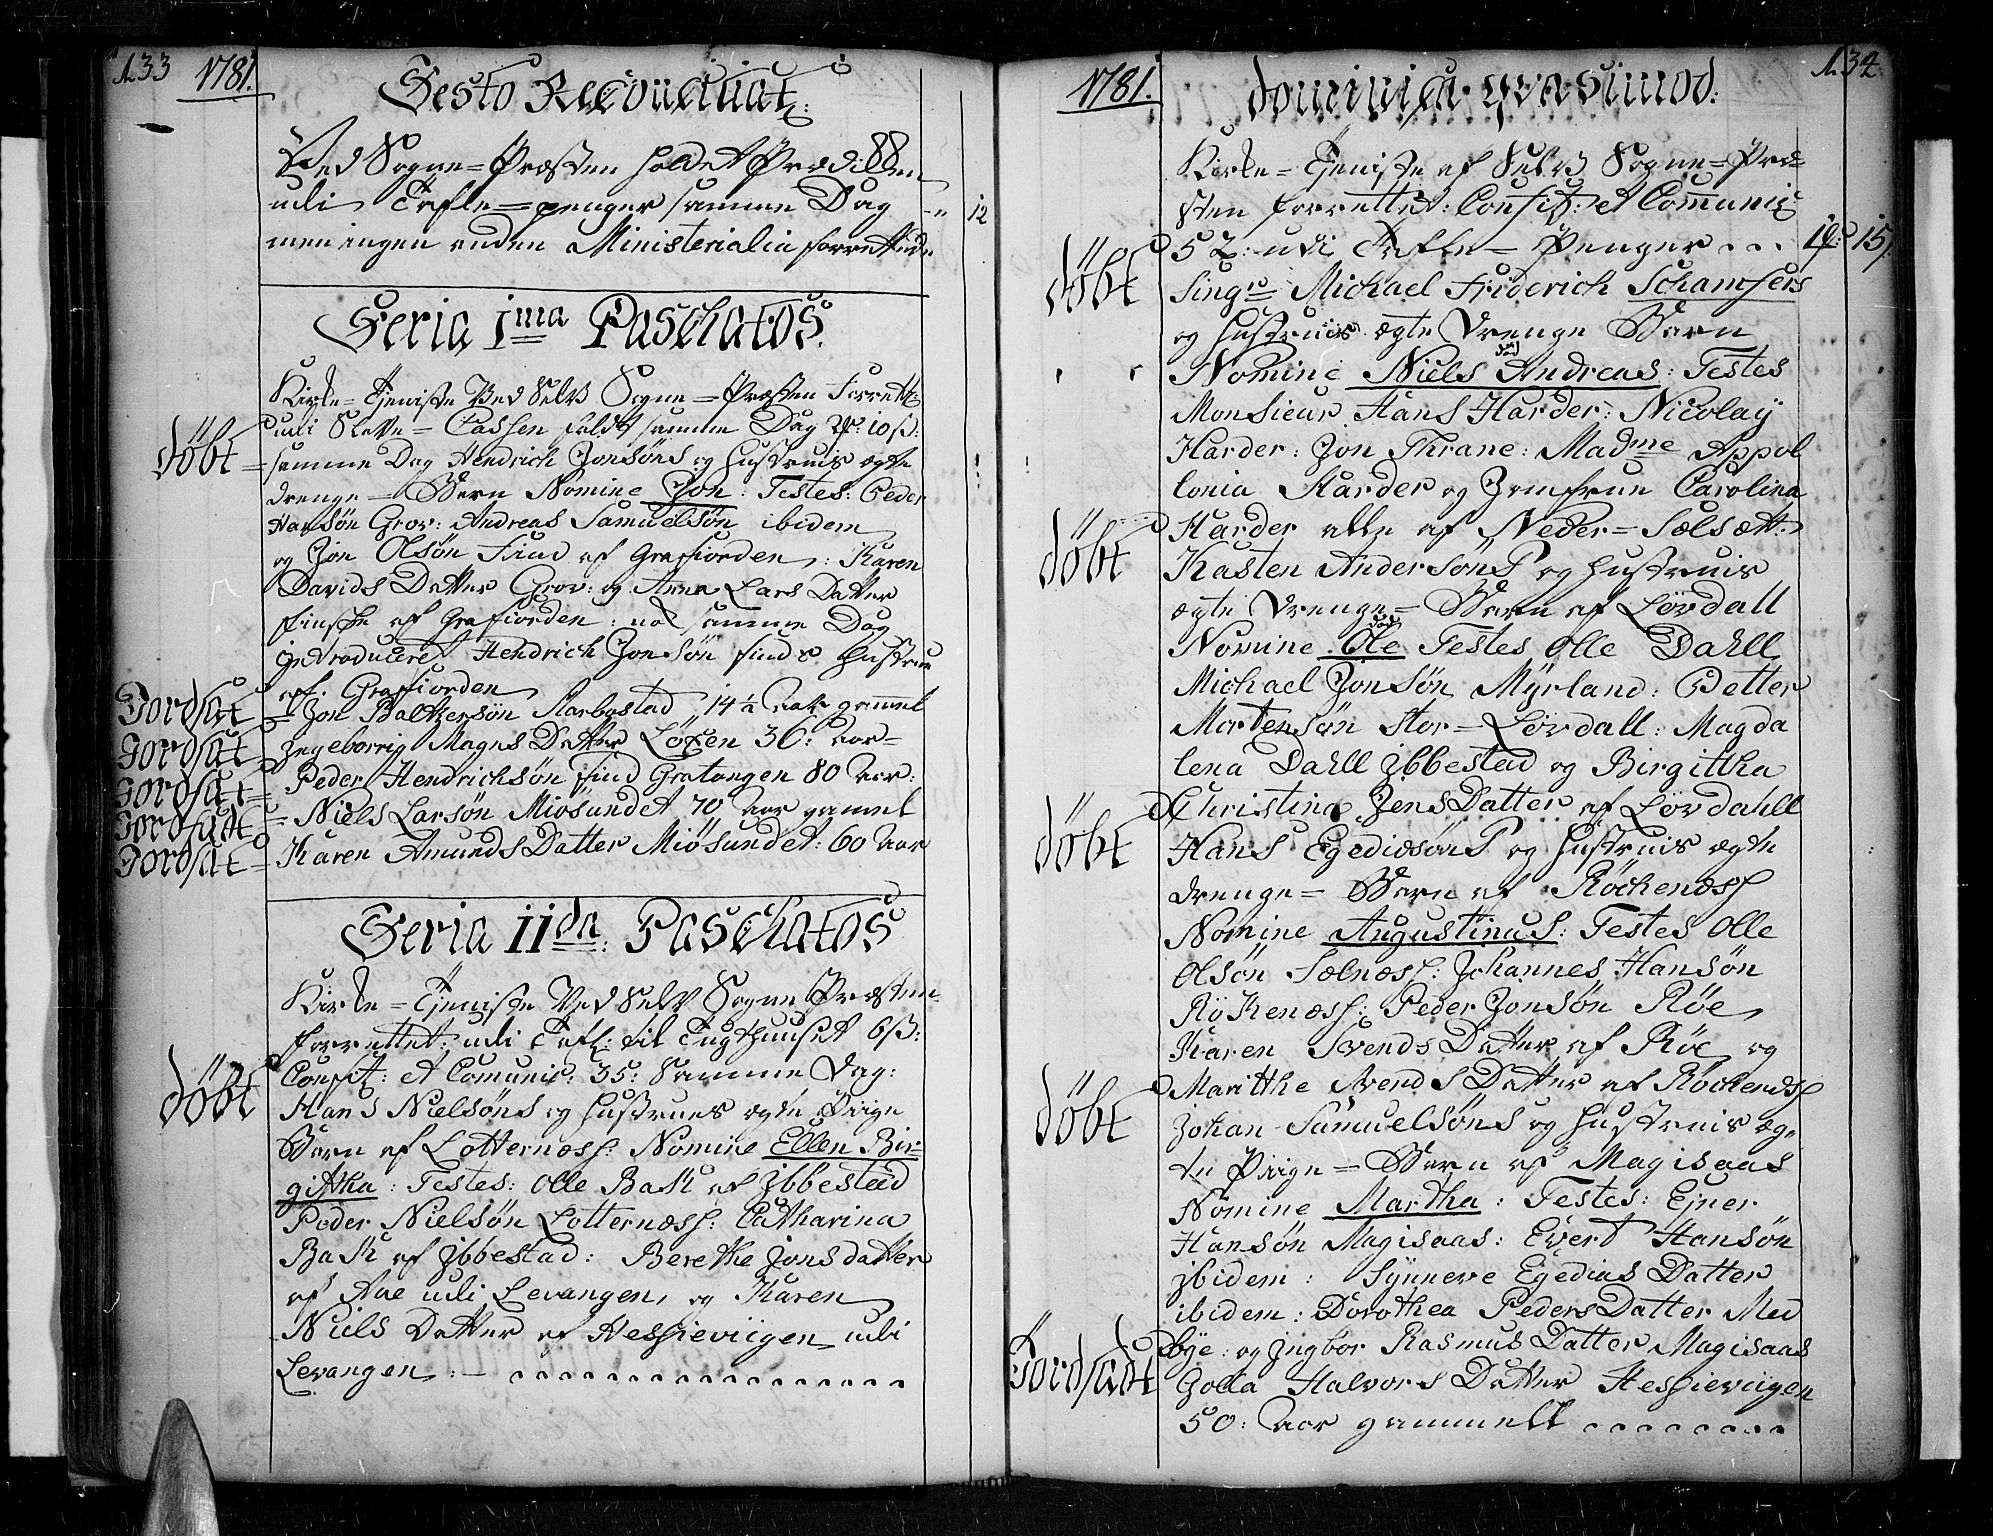 133
1781.
Festo Reconciliat:
Ved Sogne-Præsten holdet Prædiken
udi Tafle-penger samme Dag -" 12
men ingen anden Ministerialia forrettede
Feria 1ma Paschatos.
Kirke-Tieniste Ved Selv Sogne-Præsten Forrett:
udi Slave-Cassen faldt samme Dag 2 10 ß:
döbt = samme Dag Hendrich Jonsöns og Hustruis ægte
drenge-Barn Nomine Jon: Testes: Peder
Hansön Grov: Andreas Samuelsön ibidem
og Jon Olsön Find af Grafiorden: Karen
Davids Datter Grov: og Anna Lars Datter
finske af Grafiorden: nok samme Dag
Introduceret Hendrich Jonsön finds Hustrue
af. Grafiorden
Jordsat = Jon Baltzersön Aarbostad 14½ Aar gammel
Jordsat Ingeborrig Magns Datter Löxen 36: aar-
Jordsat = Peder Hendrichsön find Gratangen 80 Aar:
Jordsatt = Niels Larsön Miösundet 70 Aar gamel
Jordsat = Karen Amunds Datter Miösundet: 60 Aar
Feria IIda: Paschatos
Kirke-Tieniste Ved Selv Sogne Præsten
forrettet: udi Tafl: til Tugthuuset 6 ß:
Confit: et Comunic: 35: Samme Dag:
döbt Hans Nielsöns og Hustrues ægte Piige
Barn af Lotternæss: Nomine Ellen Bir-
gittha: Testes: Olle Bath af Ibbestad
Peder Nielsön Lotternæss: Catharina
Bath af Ibbestad: Berethe Jonsdatter
af Aae udi Levangen, og Karen
Niels Datter af Hessieviigen udi
Levangen:-
134
1781.
Dominica Qvasimod:
Kirke-Tieniste af Selv Sogne-Præ-
sten forrettet: Confit: et Comunic:
52: udi Tafle-Penger 15
döbt Singr Michael Friderich Schamsers
og Hustruis ægte Drenge Barn
Nomine Niels Andreas: Testes
död
Monsieur Hans Harder: Nicolaÿ
Harder: Jon Thrane: Madme Appol
lonia Harder og Jomfrue Carolina
Harder alle af Neder-Sælsætt:
döbt Kasten Andersöns og Hustruis
ægte Drenge-Barn af Lövdall
Nomine Ole Testes Olle Dahll
död
Michael Jonsön Mÿrland: Petter
Mortensön Stor-Lövdall: Magda
lena Dahll Ibbestad og Birgittha
Christina Jens Datter af Lövdahll
döbt Hans Egediösöns og Hustruis ægte
drenge-Barn af Röchenæss
Nomine Augustinus: Testes Olle
Olsön Sælnæss: Johannes Hansön
Röchenæss: Peder Jonsön Röe,
Karen Svends Datter af Röe, og
Maritthe Svends Datter af Röchenæss
döbt Johan Samuelsöns og Hustruis æg-
te Piige-Barn af Magisaas
Nomine Martha: Testes: Ejner
Hansön Magisaas: Evert Hansön
Ibidem: Sÿnneve Egedius Datter
ibidem: Dorothea Peders Datter Med
bÿe: og Ingbor Rasmus Datter Magisaas
Jordsadt Golla Halvors Datter Hessieviigen
50: Aar gammell